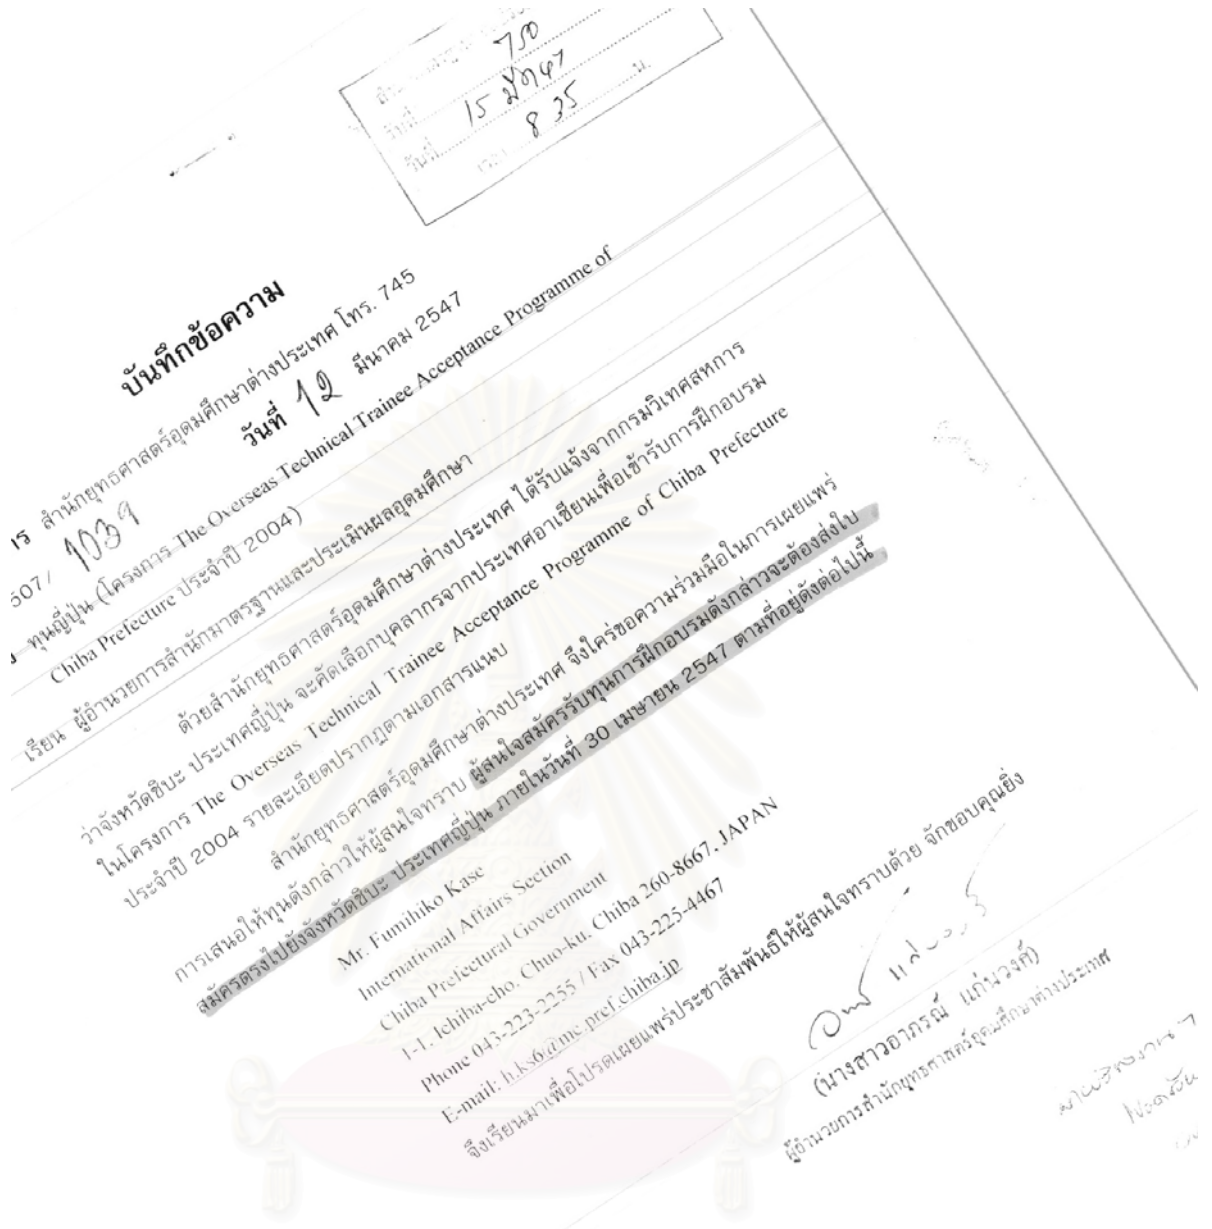 750
วันที่ 15 มีค 47
8 35 น.
บันทึกข้อความ
าร สำนักยุทธศาสตร์อุดมศึกษาต่างประเทศ โทร. 745
507/ 1039 วันที่ 12 มีนาคม 2547
ทุนญี่ปุ่น (โครงการ The Overseas Technical Trainee Acceptance Programme of
Chiba Prefecture ประจำปี 2004)
เรียน ผู้อำนวยการสำนักมาตรฐานและประเมินผลอุดมศึกษา
ด้วยสำนักยุทธศาสตร์อุดมศึกษาต่างประเทศ ได้รับแจ้งจากกรมวิเทศสหการ
ว่าจังหวัดชิบะ ประเทศญี่ปุ่น จะคัดเลือกบุคลากรจากประเทศอาเซียนเพื่อเข้ารับการฝึกอบรม
ในโครงการ The Overseas Technical Trainee Acceptance Programme of Chiba Prefecture
ประจำปี 2004 รายละเอียดปรากฏตามเอกสารแนบ
สำนักยุทธศาสตร์อุดมศึกษาต่างประเทศ จึงใคร่ขอความร่วมมือในการเผยแพร่
การเสนอให้ทุนดังกล่าวให้ผู้สนใจทราบ ผู้สนใจสมัครรับทุนการฝึกอบรมดังกล่าวจะต้องส่งใบ
สมัครตรงไปยังจังหวัดชิบะ ประเทศญี่ปุ่น ภายในวันที่ 30 เมษายน 2547 ตามที่อยู่ดังต่อไปนี้
Mr. Fumihiko Kase
International Affairs Section
Chiba Prefectural Government
1-1, Ichiba-cho, Chuo-ku, Chiba 260-8667, JAPAN
Phone 043-223-2255 / Fax 043-225-4467
E-mail: h.ks6@mc.pref.chiba.jp
จึงเรียนมาเพื่อโปรดเผยแพร่ประชาสัมพันธ์ให้ผู้สนใจทราบด้วย จักขอบคุณยิ่ง
(นางสาวอาภรณ์ แก่นวงศ์)
ผู้อำนวยการสำนักยุทธศาสตร์อุดมศึกษาต่างประเทศ